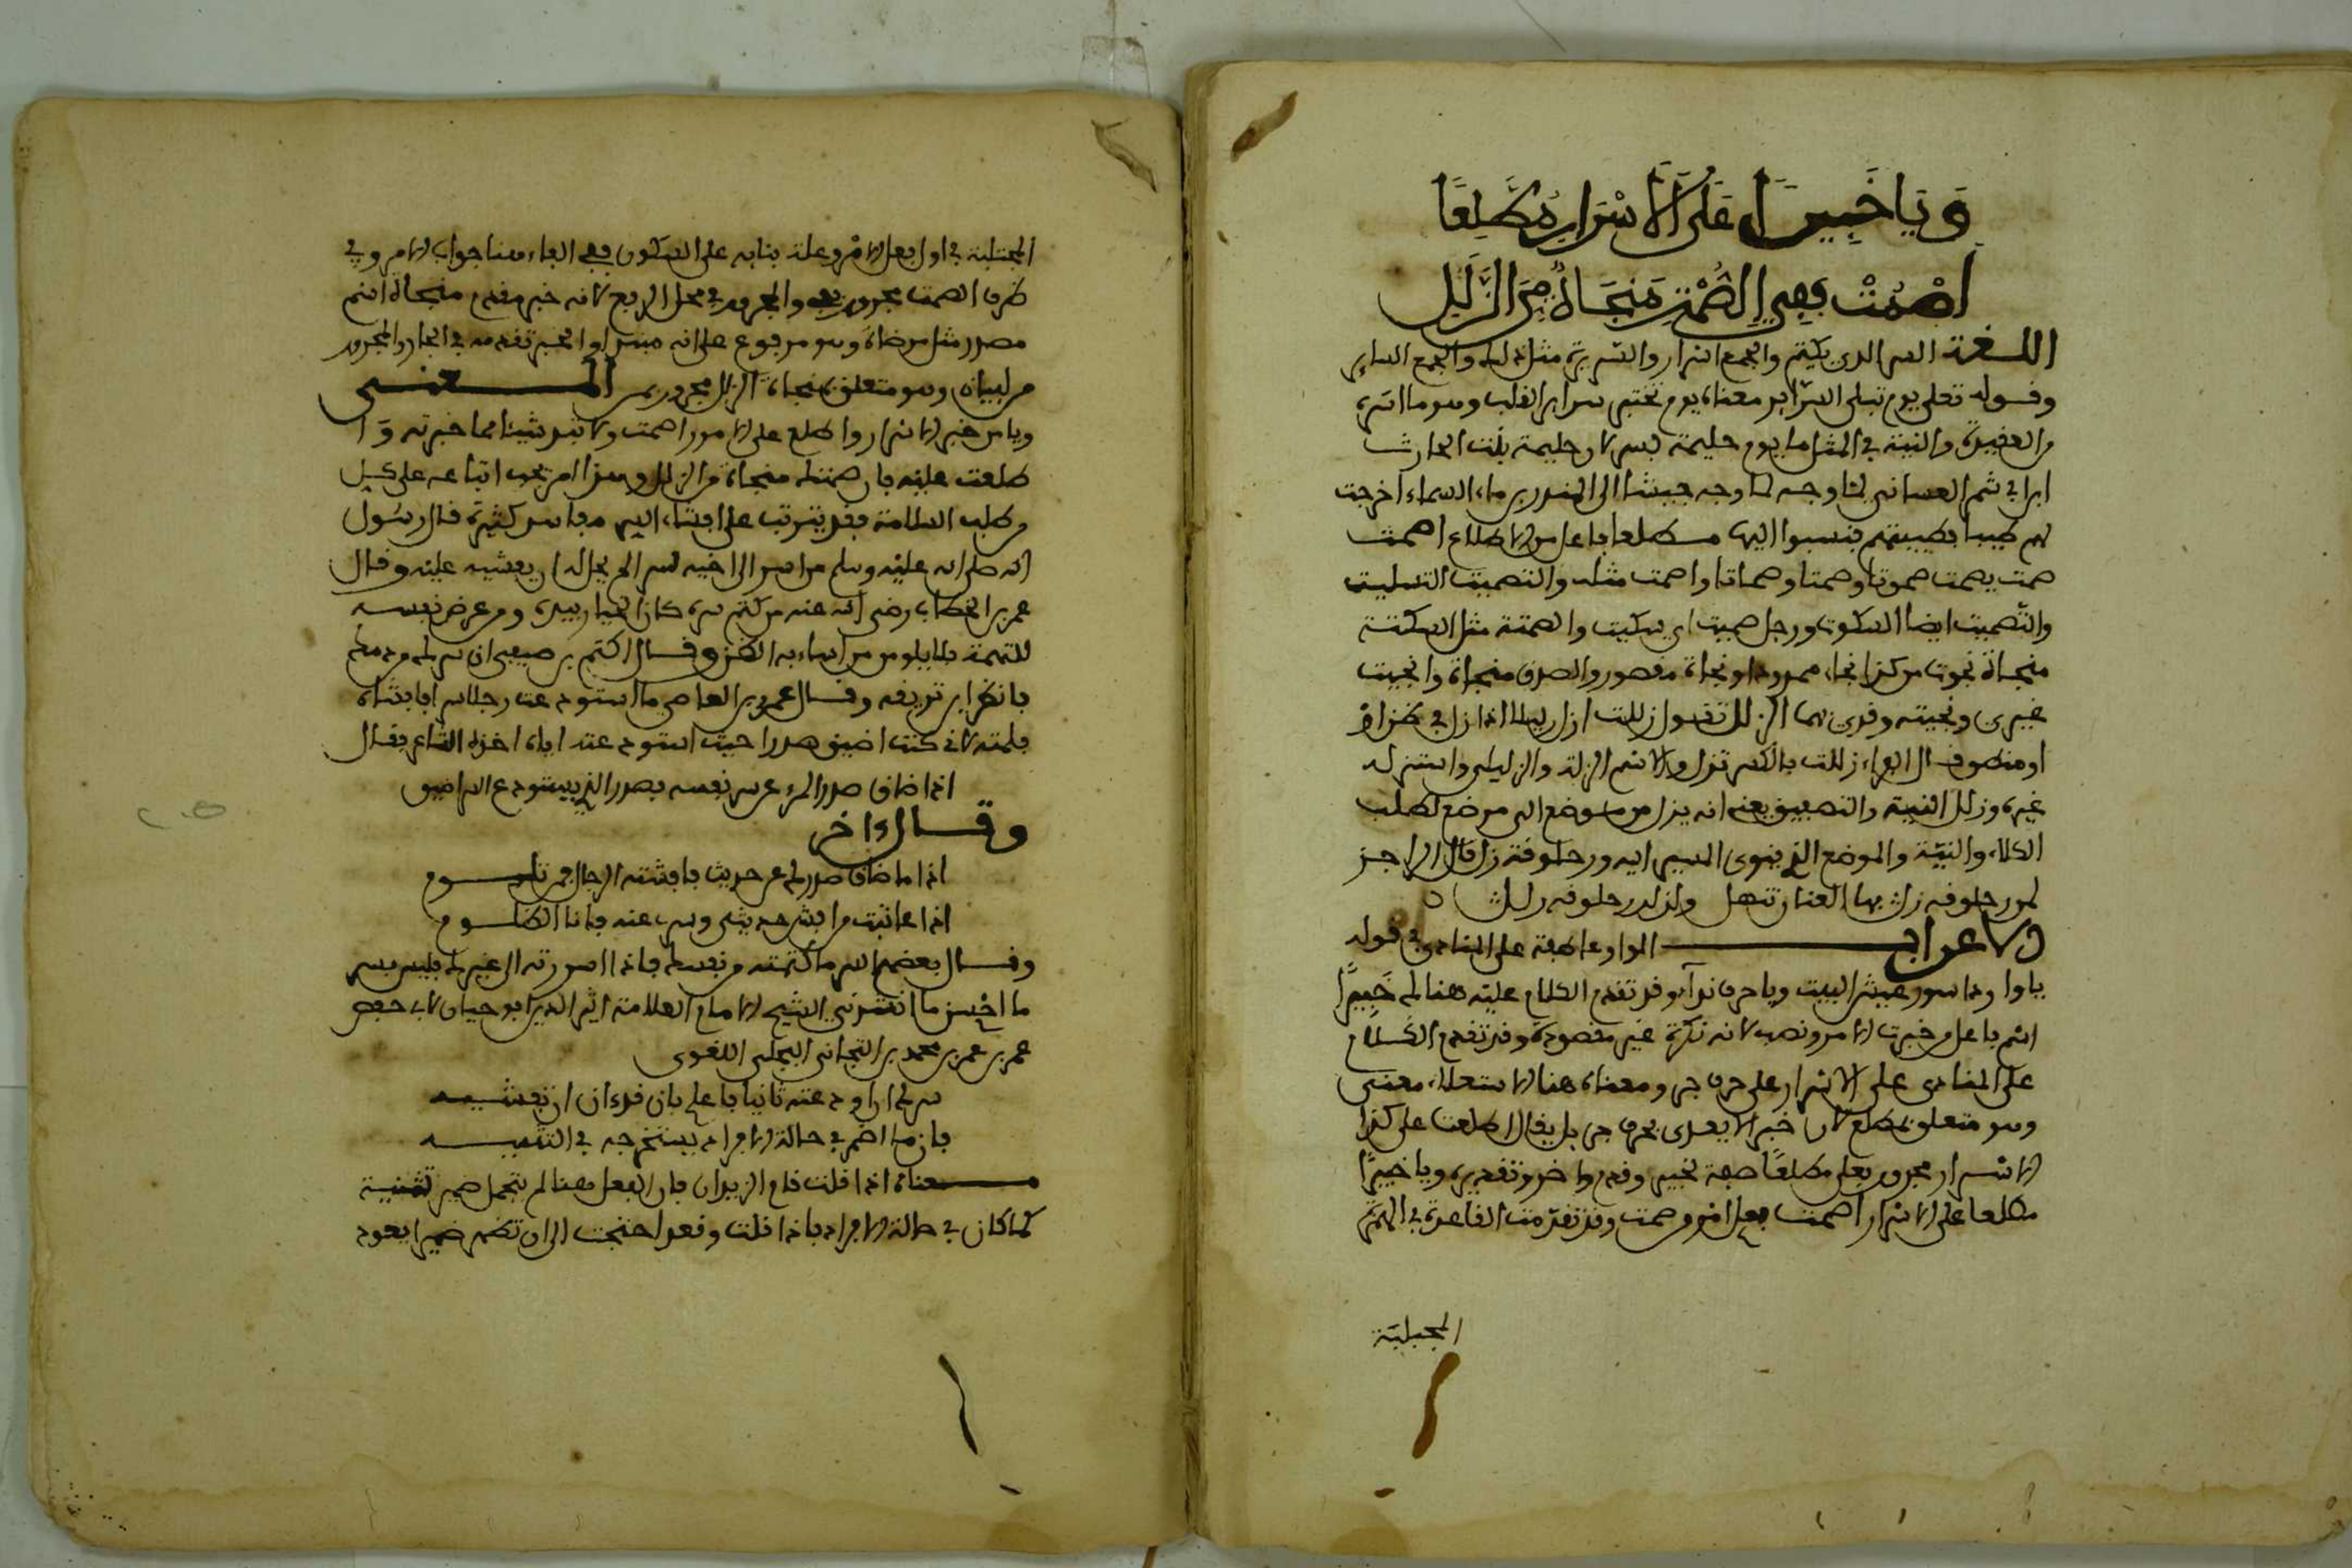 وَيَا خَبِيرًا عَلَى الْأَسْرَارِ مُطَّلِعًا
اُصْمُتْ فَفِي الصَّمْتِ مَنْجَاةٌ مِنَ الزَّلَلِ
اللغة السر الذي يكتم والجمع اسرار والسريرة مثله والجمع السراير
وقوله تعلى يوم تبلى السراير معناه يوم تختبر سراير القلب وهو ما اسره
من العقيدة والنية في المثل ما يوم حليمة بسر لان حليمة بنت الحارث
ابن ابي شمر الغساني لما وجه جيشا الى المنذر بن ماء السماء اخرجت
لهم طيبا فطيبتهم فنسبوا اليها مطلعا فاعل من الاطلاع اصمت
صمت يصمت صموتا وصمتا وصماتا واصمت مثله والتصميت التسكيت
والتصميت ايضا السكوت ورجل صميت اي سكيت والصمتة مثل السكتة
منجاة نجوت من كذا نجاء ممدود او نجاة مقصور والصدق منجاة وانجيت
غيري ونجيته وقرئ بهما الزلل تقول زللت ازل زليلا اذا زل في
او منطق قال الفراء زللت بالكسر تزل والاسم الزلة والزليلى واستزله
غيره
الكلاء والنية والموضع الذي ينوي المسير اليه وزحلوقة زل قال الراجز
لمن زحلوقة زل بها العينان تنهل
الاعراب الواو عاطفة على المنادى في قوله
يا واردا سور عيش البيت ويا حرف نداء وقد تقدم الكلام عليه هنالك خَبِيرًا
اسم فاعل من خبرت الامر ونصب لانه نكرة غير مقصودة وقد تقدم الكلام
على المنادى على الاسرار على حرف جر ومعناه هنا الاستعلاء معنى
وهو متعلق بمطلع لان خبر لا يعدى بحرف جر بل يقال اطلعت على كذا
الاسرار مجرور بعلى مطلعًا صفة لخبير وقدم واخر وتقديره ويا خبيرًا
مطلعا على الاسرار اصمت فعل امر من صمت وقد تقدمت القاعدة في الهمزة
المجتلبة
المجتلبة في اول فعل الامر وعلة بنايه على السكون ففي الفاء هنا جواب الامر وفي
ظرف الصمت مجرور بفي والمجرور في محل الرفع لانه خبر مقدم منجاة اسم
مصدر مثل مرضاة وهو مرفوع على انه مبتدا والخبر تقدمه في الجار والمجرور
من لبيان وهو متعلق بمنجاة الزلل مجرور بمن المعنى
ويا من خبر الاسرار واطلع على الامور اصمت ولا تبد شيئا مما خبرته وا
طلعت عليه فان صمتك منجاة من الزلل وهذا امر يجب اتباعه على كل
من طلب السلامة فقد يترتب على افشاء السر مفاسد كثيرة قال رسول
الله صلى الله عليه وسلم من اسر الى اخيه سرا لم يحل له ان يفشيه عليه وقال
عمر بن الخطاب رضي الله عنه من كتم سره كان الخيار بيده ومن عرض نفسه
للتهمة فلا يلومن من اساء به الظن وقال اكثم بن صيفي ان سرك من دمك
فانظر اين تريقه وقال عمرو بن العاصي ما استودعت رجلا سرا فافشاه
فلمته لاني كنت اضيق صدرا حيث استودعته اياه اخذه الشاعر فقال
اذا ضاق صدر المرء عن سر نفسه فصدر الذي يستودع السر اضيق
وقال ءاخر
اذا ما ضاق صدرك عن حديث فافشته الرجال فمن تلوم
اذا عاتبت من افشى حديثي وسري عنده فانا الظلوم
وقال بعضهم السر ما كتمته من نفسك فاذا اصدرته الى غيرك فليس بسر
ما احسن ما انشدني الشيخ الامام العلامة اثير الدين ابو حيان لابي حفص
عمر بن عمر بن محمد بن التجاني البجلي اللغوي
سرك ان اودعته ثانيا فاعلم بان قد ءان ان تفشيه
فان ما اضمر في حالة الافراد يستخرجه في التثنيه
معناه اذا قلت قام الزيدان فان الفعل هنا لم يتحمل ضمير تثنية
كما كان في حالة الافراد فاذا قلت وقعد احتجت الى ان تضمر ضميرا يعود